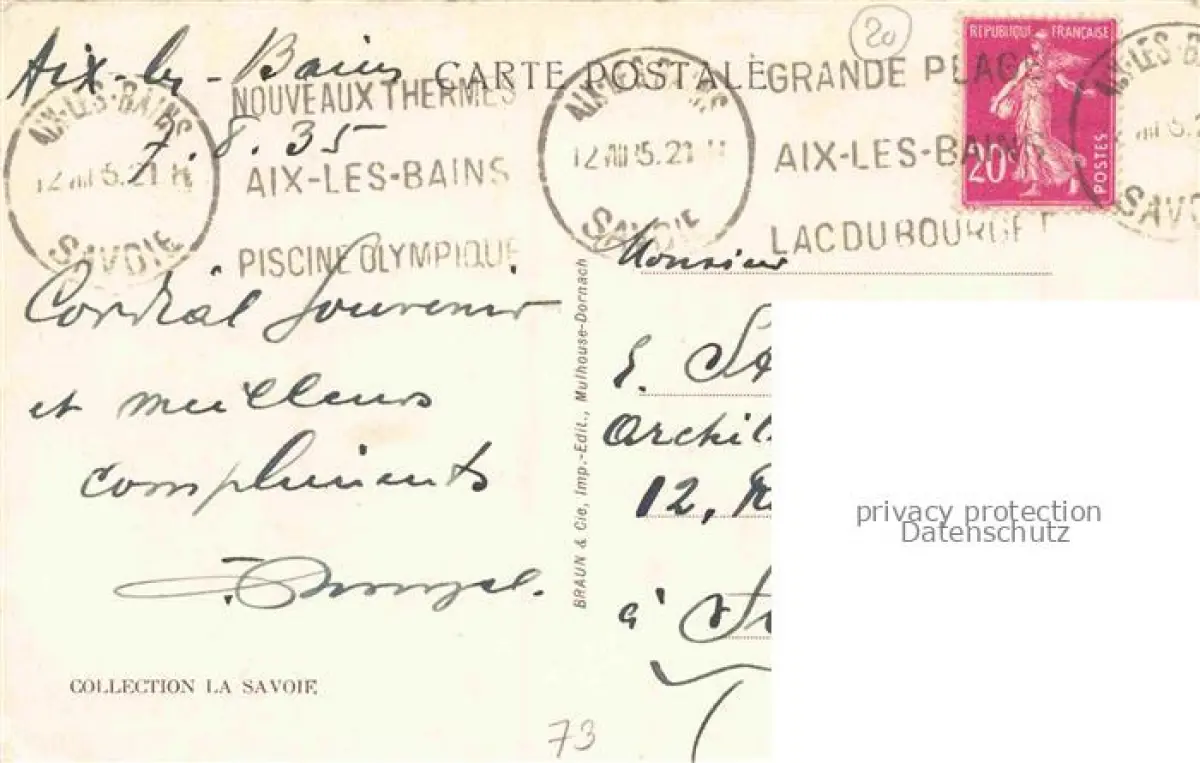 Aix-les-Bains
7.8.35
CARTE POSTALE
20
AIX-LES-BAINS
12 VIII 35.21 H
SAVOIE
NOUVEAUX THERMES
AIX-LES-BAINS
PISCINE OLYMPIQUE
AIX-LES-BAINS
12 VIII 35.21 H
SAVOIE
GRANDE PLAGE
AIX-LES-BAINS
LAC DU BOURGET
RÉPUBLIQUE FRANÇAISE
20c
POSTES
AIX-LES-BA
SAVO
Cordial souvenir
et meilleurs
compliments
COLLECTION LA SAVOIE
BRAUN & Cie, Imp.-Edit., Mulhouse-Dornach
Monsieur
E. St
Archit
12, R
à St
privacy protection
Datenschutz
73